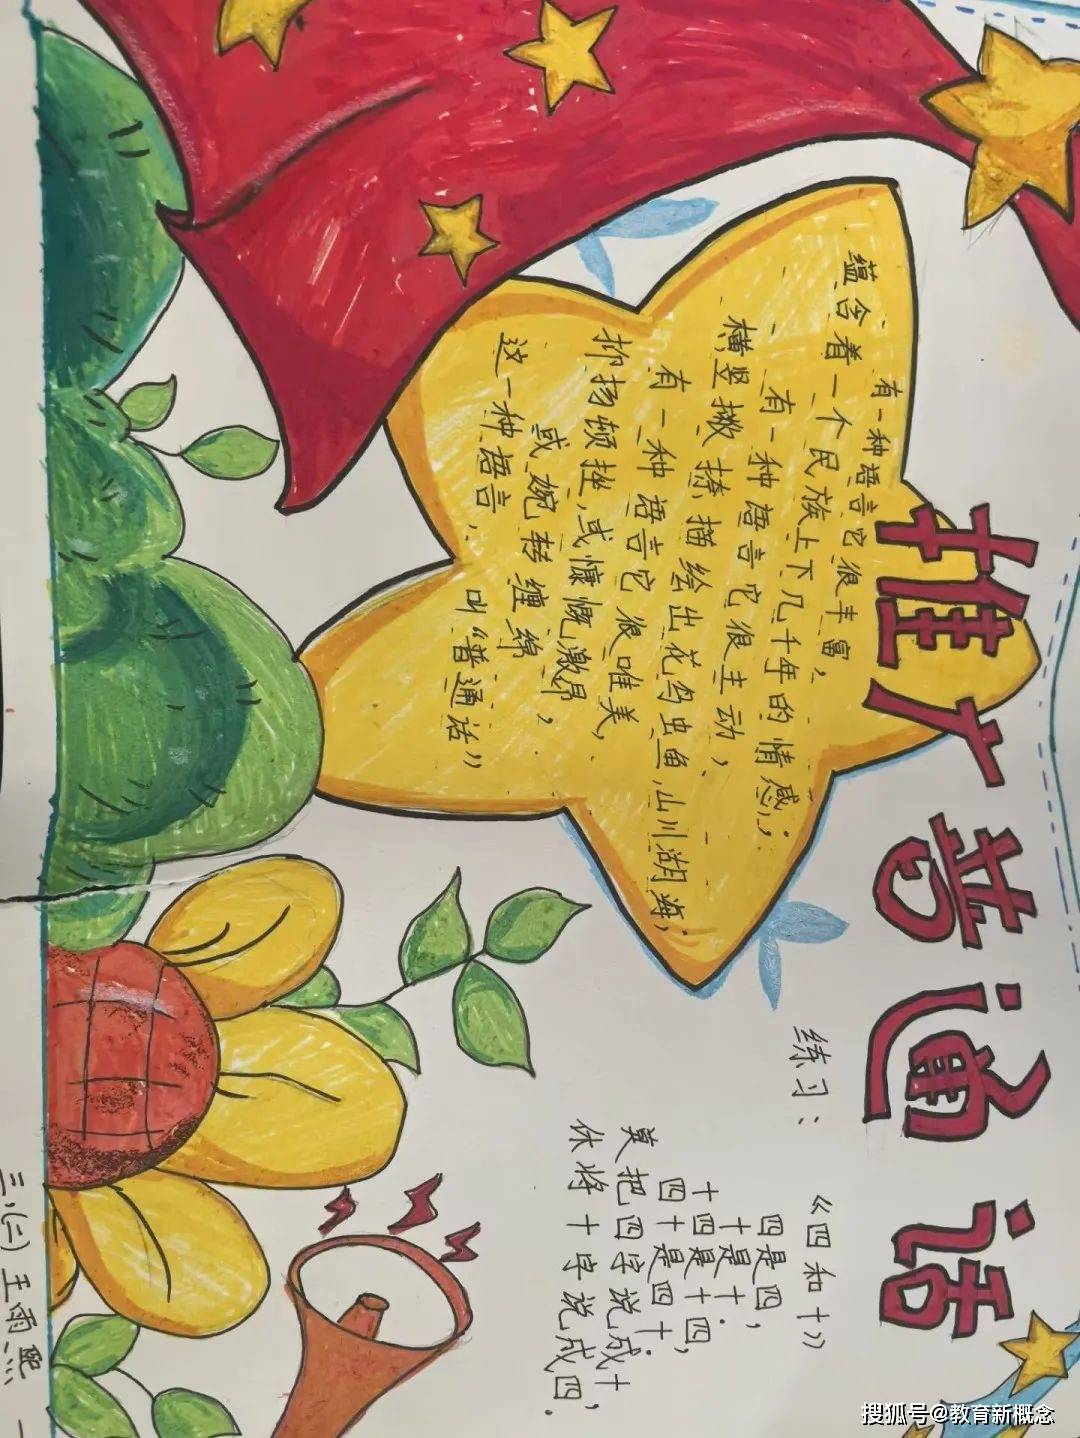 推广普通话
有一种语言它很丰富,
蕴含着一个民族上下几千年的情感;
有一种语言它很主动,
横竖撇捺描绘出花鸟虫鱼,山川湖海;
有一种语言它很唯美,
抑扬顿挫,或慷慨激昂,
或婉转缠绵,
这一种语言,叫“普通话”
练习:《四和十》
四是四,
十是十.
十四是十四,
四十是四十.
莫把四字说成十,
休将十字说成四.
三.(二) 王雨熙
搜狐号@教育新概念